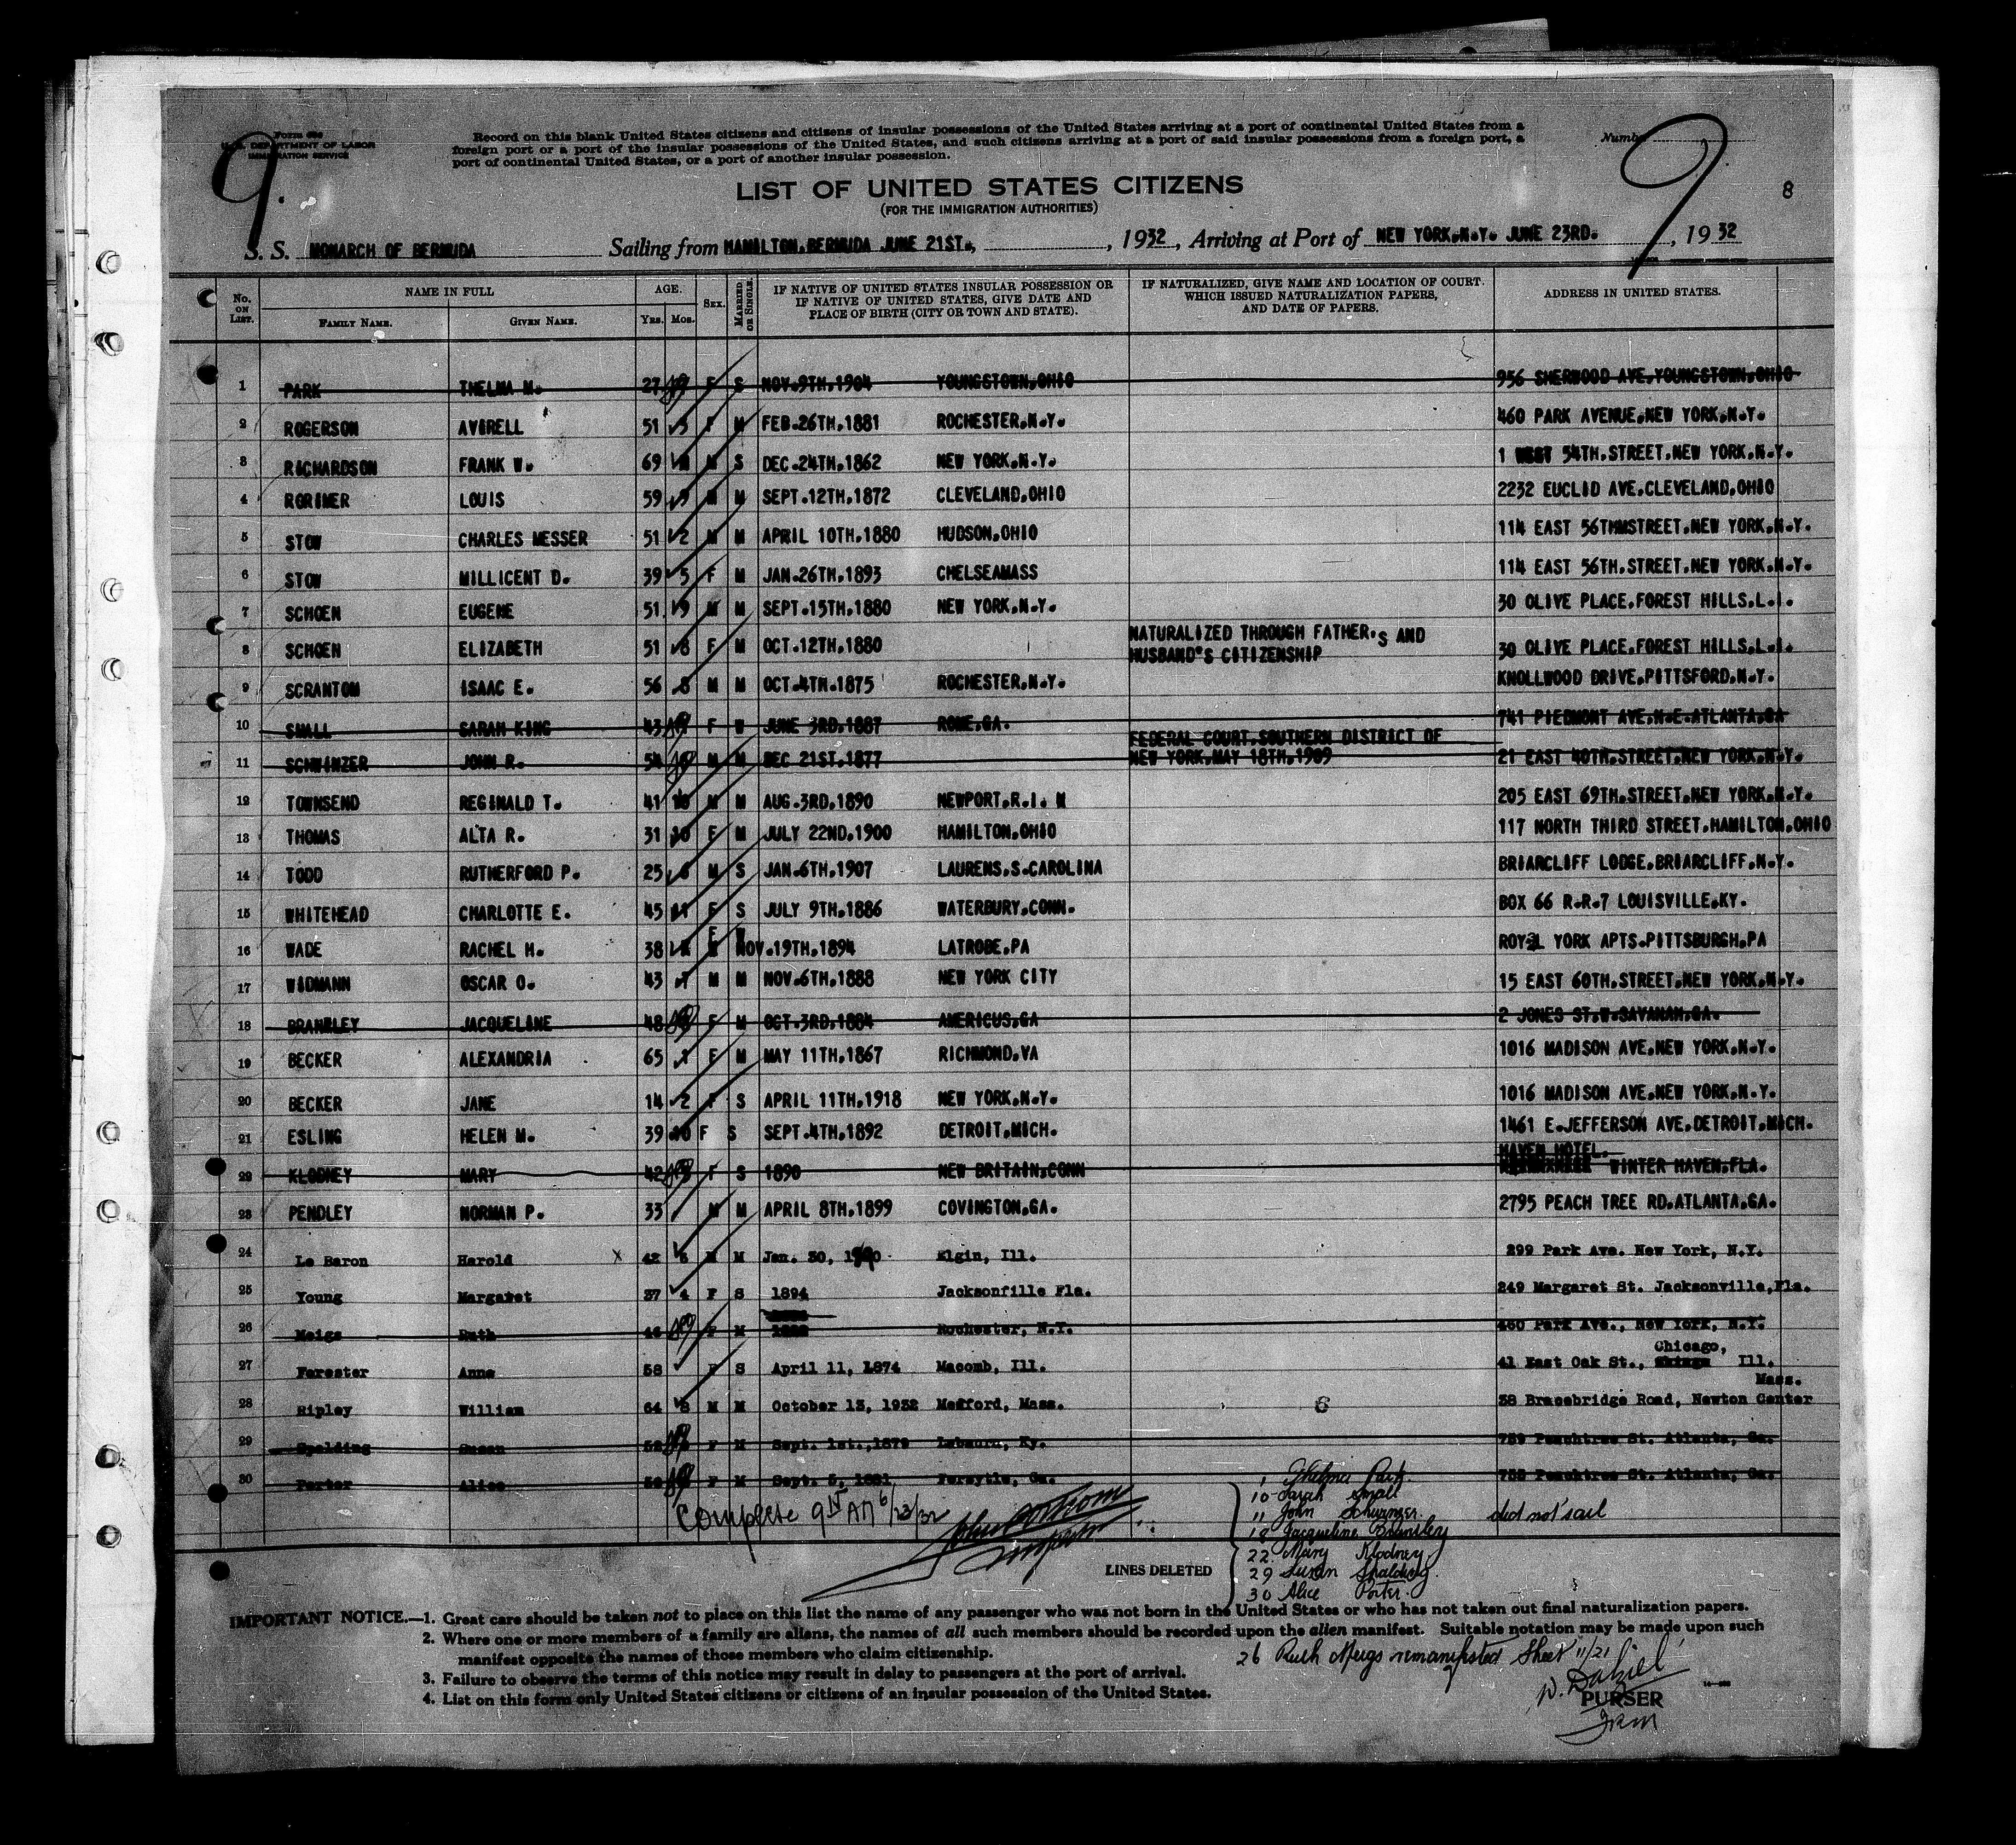 9.
Form 630
U. S. DEPARTMENT OF LABOR
IMMIGRATION SERVICE
Record on this blank United States citizens and citizens of insular possessions of the United States arriving at a port of continental United States from a
foreign port or a port of the insular possessions of the United States, and such citizens arriving at a port of said insular possessions from a foreign port, a
port of continental United States, or a port of another insular possession.
Number
9
8
LIST OF UNITED STATES CITIZENS
(FOR THE IMMIGRATION AUTHORITIES)
S. S. MONARCH OF BERMUDA Sailing from HAMILTON,BERMUDA JUNE 21ST., , 1932 , Arriving at Port of NEW YORK,N.Y. JUNE 23RD. , 1932
No. ON LIST. NAME IN FULL FAMILY NAME. GIVEN NAME. AGE. YRS. MOS. SEX. MARRIED OR SINGLE. IF NATIVE OF UNITED STATES INSULAR POSSESSION OR IF NATIVE OF UNITED STATES, GIVE DATE AND PLACE OF BIRTH (CITY OR TOWN AND STATE). IF NATURALIZED, GIVE NAME AND LOCATION OF COURT WHICH ISSUED NATURALIZATION PAPERS, AND DATE OF PAPERS. ADDRESS IN UNITED STATES.
1 PARK THELMA M. 27 F S NOV.9TH,1904 YOUNGSTOWN,OHIO 956 SHERWOOD AVE,YOUNGSTOWN,OHIO
2 ROGERSON AVERELL 51 3 F M FEB.26TH,1881 ROCHESTER,N.Y. 460 PARK AVENUE,NEW YORK,N.Y.
3 RICHARDSON FRANK W. 69 M S DEC.24TH,1862 NEW YORK,N.Y. 1 WEST 54TH.STREET.NEW YORK.N.Y.
4 RORIMER LOUIS 59 9 M M SEPT.12TH,1872 CLEVELAND,OHIO 2232 EUCLID AVE.CLEVELAND,OHIO
5 STOW CHARLES MESSER 51 2 M M APRIL 10TH,1880 HUDSON,OHIO 114 EAST 56THMSTREET.NEW YORK.N.Y.
6 STOW MILLICENT D. 39 5 F M JAN.26TH,1893 CHELSEAMASS 114 EAST 56TH.STREET.NEW YORK.N.Y.
7 SCHOEN EUGENE 51 9 M M SEPT.15TH,1880 NEW YORK,N.Y. 30 OLIVE PLACE,FOREST HILLS,L.I.
8 SCHOEN ELIZABETH 51 8 F M OCT.12TH,1880 NATURALIZED THROUGH FATHER.S AND HUSBAND'S CITIZENSHIP 30 OLIVE PLACE,FOREST HILLS,L.I.
9 SCRANTOM ISAAC E. 56 8 M M OCT.4TH.1875 ROCHESTER,N.Y. KNOLLWOOD DRIVE,PITTSFORD,N.Y.
10 SMALL SARAH KING 43 F W JUNE 3RD,1887 ROME,GA. 741 PIEDMONT AVE,N.E.ATLANTA,GA
11 SCHWINZER JOHN R. 54 M M DEC 21ST,1877 FEDERAL COURT,SOUTHERN DISTRICT OF NEW YORK,MAY 18TH,1909 21 EAST 40TH.STREET.NEW YORK.N.Y.
12 TOWNSEND REGINALD T. 41 10 M M AUG.3RD,1890 NEWPORT,R.I. M 205 EAST 69TH.STREET.NEW YORK.N.Y.
13 THOMAS ALTA R. 31 10 F M JULY 22ND,1900 HAMILTON,OHIO 117 NORTH THIRD STREET.HAMILTON,OHIO
14 TODD RUTHERFORD P. 25 M S JAN.6TH,1907 LAURENS,S.CAROLINA BRIARCLIFF LODGE,BRIARCLIFF,N.Y.
15 WHITEHEAD CHARLOTTE E. 45 11 F S JULY 9TH,1886 WATERBURY,CONN. BOX 66 R.R.7 LOUISVILLE,KY.
16 WADE RACHEL H. 38 F W NOV.19TH,1894 LATROBE,PA ROYAL YORK APTS.PITTSBURGH,PA
17 WIDMANN OSCAR O. 43 7 M M NOV.6TH,1888 NEW YORK CITY 15 EAST 60TH.STREET,NEW YORK,N.Y.
18 BRANNLEY JACQUELINE 48 F M OCT.3RD,1884 AMERICUS,GA 2 JONES ST.W.SAVANAH,GA.
19 BECKER ALEXANDRIA 65 1 F M MAY 11TH,1867 RICHMOND,VA 1016 MADISON AVE,NEW YORK,N.Y.
20 BECKER JANE 14 2 F S APRIL 11TH,1918 NEW YORK,N.Y. 1016 MADISON AVE,NEW YORK,N.Y.
21 ESLING HELEN M. 39 10 F S SEPT.4TH,1892 DETROIT,MICH. 1461 E.JEFFERSON AVE,DETROIT,MICH.
22 KLODNEY MARY 42 F S 1890 NEW BRITAIN,CONN HAVEN HOTEL. WINTER HAVEN,FLA.
23 PENDLEY NORMAN P. 33 M M APRIL 8TH,1899 COVINGTON,GA. 2795 PEACH TREE RD.ATLANTA,GA.
24 Le Baron Harold X 42 M M Jan. 30, 1890 Elgin, Ill. 299 Park Ave. New York, N.Y.
25 Young Margaret 37 4 F S 1894 Jacksonfille Fla. 249 Margaret St. Jacksonville,Fla.
26 Meigs Ruth 46 F M Rochester, N.Y. 460 Park Ave., New York, N.Y.
27 Forester Anne 58 F S April 11, 1874 Macomb, Ill. 41 East Oak St., Chicago, Ill.
28 Ripley William 64 8 M M October 13, 1932 Mefford, Mass. 38 Bracebridge Road, Newton Center Mass.
29 Spalding Susan 52 F M Sept. 1st.,1879 Ky. 789 Peachtree St. Atlanta, Ga.
30 Porter Alice 50 F M Sept. 5, 1881 Forsytle, Ga. 738 Peachtree St. Atlanta, Ga.
Complete 9 AM 6/23/32
LINES DELETED
1 Thelma Park
10 Sarah Small
11 John Schwinzer. did not sail
18 Jacqueline Brannley
22. Mary Klodney.
29 Susan Spalding.
30 Alice Porter.
IMPORTANT NOTICE.—1. Great care should be taken not to place on this list the name of any passenger who was not born in the United States or who has not taken out final naturalization papers.
2. Where one or more members of a family are aliens, the names of all such members should be recorded upon the alien manifest. Suitable notation may be made upon such
manifest opposite the names of those members who claim citizenship.
3. Failure to observe the terms of this notice may result in delay to passengers at the port of arrival.
4. List on this form only United States citizens or citizens of an insular possession of the United States.
26 Ruth Meigs remanifested Sheet 11/21
PURSER